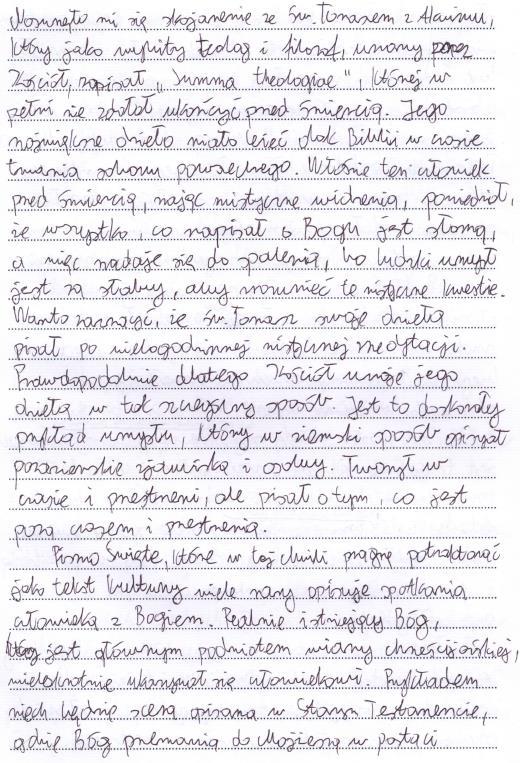 Nasunęło mi się skojarzenie ze św. Tomaszem z Akwinu,
który jako wybitny teolog i filozof, uznany przez
Kościół, napisał „Summa theologiae", której w
pełni nie zdołał ukończyć przed śmiercią. Jego
największe dzieło miało leżeć obok Biblii w czasie
trwania soboru powszechnego. Właśnie ten człowiek
przed śmiercią, mając mistyczne widzenia, powiedział,
że wszystko, co napisał o Bogu jest słomą,
a więc nadaje się do spalenia, bo ludzki umysł
jest za słaby, aby zrozumieć te mistyczne kwestie.
Warto zaznaczyć, że św. Tomasz swoje dzieła
pisał po wielogodzinnej mistycznej medytacji.
Prawdopodobnie dlatego Kościół uznaje jego
dzieła w tak szczególny sposób. Jest to doskonały
przykład umysłu, który w ziemski sposób opisywał
pozaziemskie zjawiska i osoby. Tworzył w
czasie i przestrzeni, ale pisał o tym, co jest
poza czasem i przestrzenią.
Pismo Święte, które w tej chwili pragnę potraktować
jako tekst kultury wiele razy opisuje spotkania
człowieka z Bogiem. Realnie istniejący Bóg,
który jest głównym podmiotem wiary chrześcijańskiej,
wielokrotnie ukazywał się człowiekowi. Przykładem
niech będzie scena opisana w Starym Testamencie,
gdzie Bóg przemawia do Mojżesza w postaci